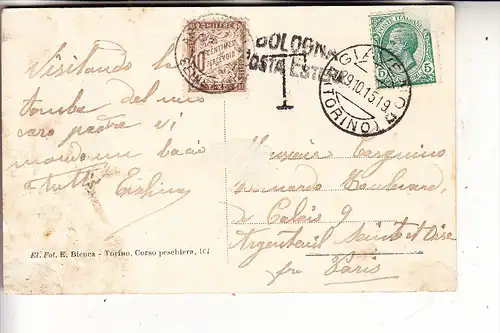 Visitando la
tomba del mio
caro padre vi
mando un bacio
a tutti
BOLOGNA
POSTA ESTERA
T
10 CENTIMES
A PERCEVOIR
POSTE ITALIANE
5 5
GIAVENO
29.10.15.19
(TORINO)
Monsieur
Boulevard,
de Calais 9
Argenteuil Seine et Oise
Paris
El. Fot. E. Bienca - Torino, Corso peschiera, 161